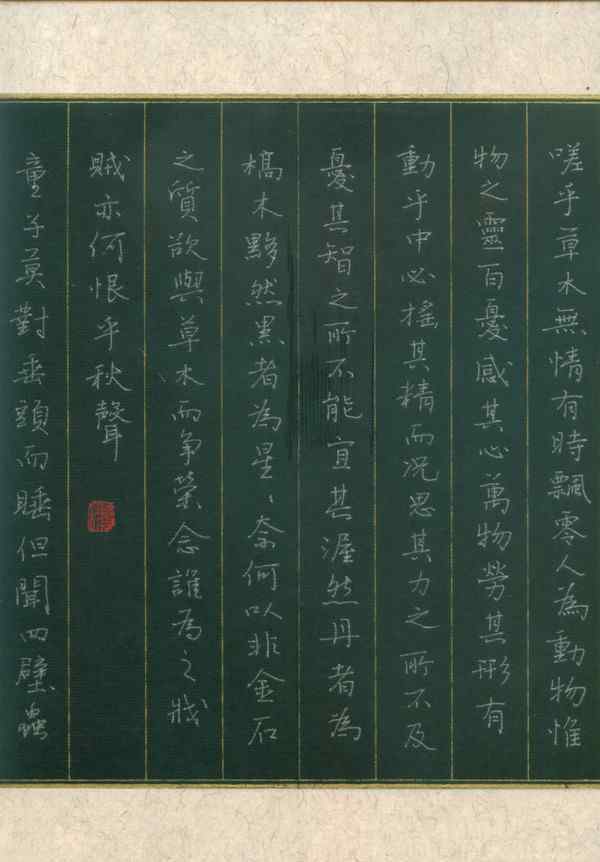 嗟乎草木無情有時飄零人為動物惟
物之靈百憂感其心萬物勞其形有
動乎中必搖其精而況思其力之所不及
憂其智之所不能宜其渥然丹者為
槁木黟然黑者為星〻奈何以非金石
之質欲與草木而争榮念誰為之戕
賊亦何恨乎秋聲
童子莫對垂頭而睡但聞四壁蟲